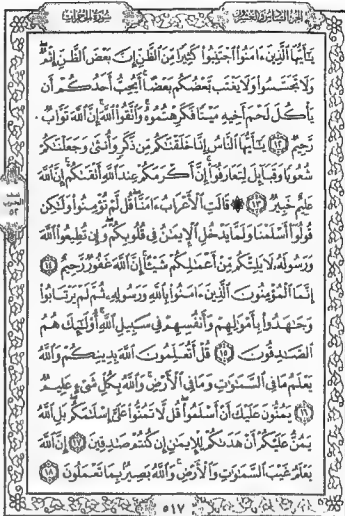 سورة الحجرات
الجزء السادس والعشرون
يَٰٓأَيُّهَا ٱلَّذِينَ ءَامَنُوا۟ ٱجْتَنِبُوا۟ كَثِيرًا مِّنَ ٱلظَّنِّ إِنَّ بَعْضَ ٱلظَّنِّ إِثْمٌ
وَلَا تَجَسَّسُوا۟ وَلَا يَغْتَب بَّعْضُكُم بَعْضًا أَيُحِبُّ أَحَدُكُمْ أَن
يَأْكُلَ لَحْمَ أَخِيهِ مَيْتًا فَكَرِهْتُمُوهُ وَٱتَّقُوا۟ ٱللَّهَ إِنَّ ٱللَّهَ تَوَّابٌ
رَّحِيمٌ ١٢ يَٰٓأَيُّهَا ٱلنَّاسُ إِنَّا خَلَقْنَٰكُم مِّن ذَكَرٍ وَأُنثَىٰ وَجَعَلْنَٰكُمْ
شُعُوبًا وَقَبَآئِلَ لِتَعَارَفُوٓا۟ إِنَّ أَكْرَمَكُمْ عِندَ ٱللَّهِ أَتْقَىٰكُمْ إِنَّ ٱللَّهَ
عَلِيمٌ خَبِيرٌ ١٣ ۞ قَالَتِ ٱلْأَعْرَابُ ءَامَنَّا قُل لَّمْ تُؤْمِنُوا۟ وَلَٰكِن
قُولُوٓا۟ أَسْلَمْنَا وَلَمَّا يَدْخُلِ ٱلْإِيمَٰنُ فِى قُلُوبِكُمْ وَإِن تُطِيعُوا۟ ٱللَّهَ
وَرَسُولَهُۥ لَا يَلِتْكُم مِّنْ أَعْمَٰلِكُمْ شَيْـًٔا إِنَّ ٱللَّهَ غَفُورٌ رَّحِيمٌ ١٤
إِنَّمَا ٱلْمُؤْمِنُونَ ٱلَّذِينَ ءَامَنُوا۟ بِٱللَّهِ وَرَسُولِهِۦ ثُمَّ لَمْ يَرْتَابُوا۟
وَجَٰهَدُوا۟ بِأَمْوَٰلِهِمْ وَأَنفُسِهِمْ فِى سَبِيلِ ٱللَّهِ أُو۟لَٰٓئِكَ هُمُ
ٱلصَّٰدِقُونَ ١٥ قُلْ أَتُعَلِّمُونَ ٱللَّهَ بِدِينِكُمْ وَٱللَّهُ
يَعْلَمُ مَا فِى ٱلسَّمَٰوَٰتِ وَمَا فِى ٱلْأَرْضِ وَٱللَّهُ بِكُلِّ شَىْءٍ عَلِيمٌ
١٦ يَمُنُّونَ عَلَيْكَ أَنْ أَسْلَمُوا۟ قُل لَّا تَمُنُّوا۟ عَلَىَّ إِسْلَٰمَكُم بَلِ ٱللَّهُ
يَمُنُّ عَلَيْكُمْ أَنْ هَدَىٰكُمْ لِلْإِيمَٰنِ إِن كُنتُمْ صَٰدِقِينَ ١٧ إِنَّ ٱللَّهَ
يَعْلَمُ غَيْبَ ٱلسَّمَٰوَٰتِ وَٱلْأَرْضِ وَٱللَّهُ بَصِيرٌۢ بِمَا تَعْمَلُونَ ١٨
٥١٧